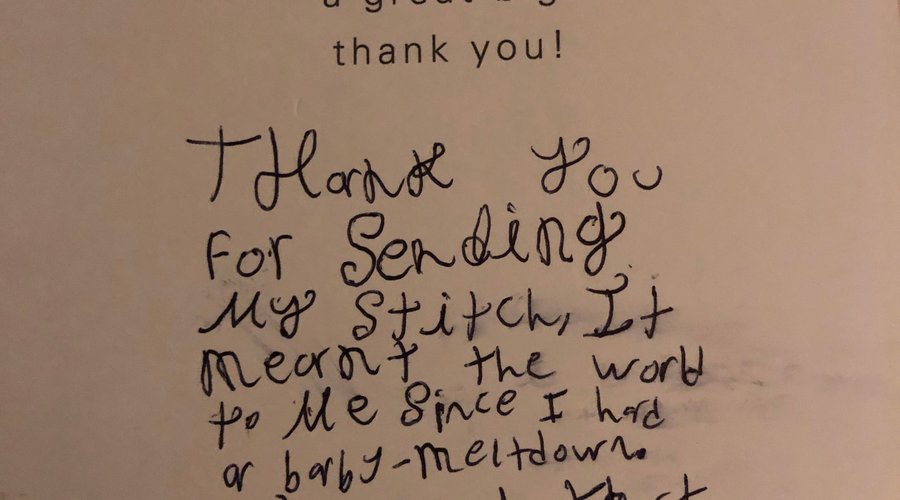 a great big
thank you!
THank you
For Sending
My Stitch, It
meant the world
to Me Since I had
a baby-meltdown.